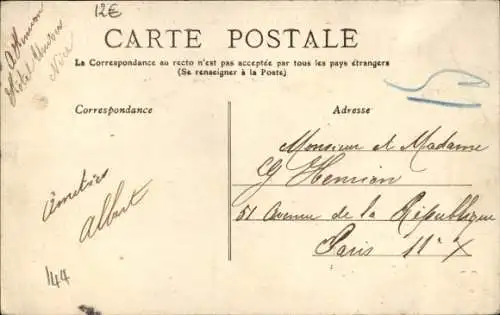 12€
Hôtel
Nice
CARTE POSTALE
La Correspondance au recto n'est pas acceptée par tous les pays étrangers
(Se renseigner à la Poste)
Correspondance
Adresse
Monsieur et Madame
Henrion
51 Avenue de la République
Paris 11e
Amitiés
Albert
144